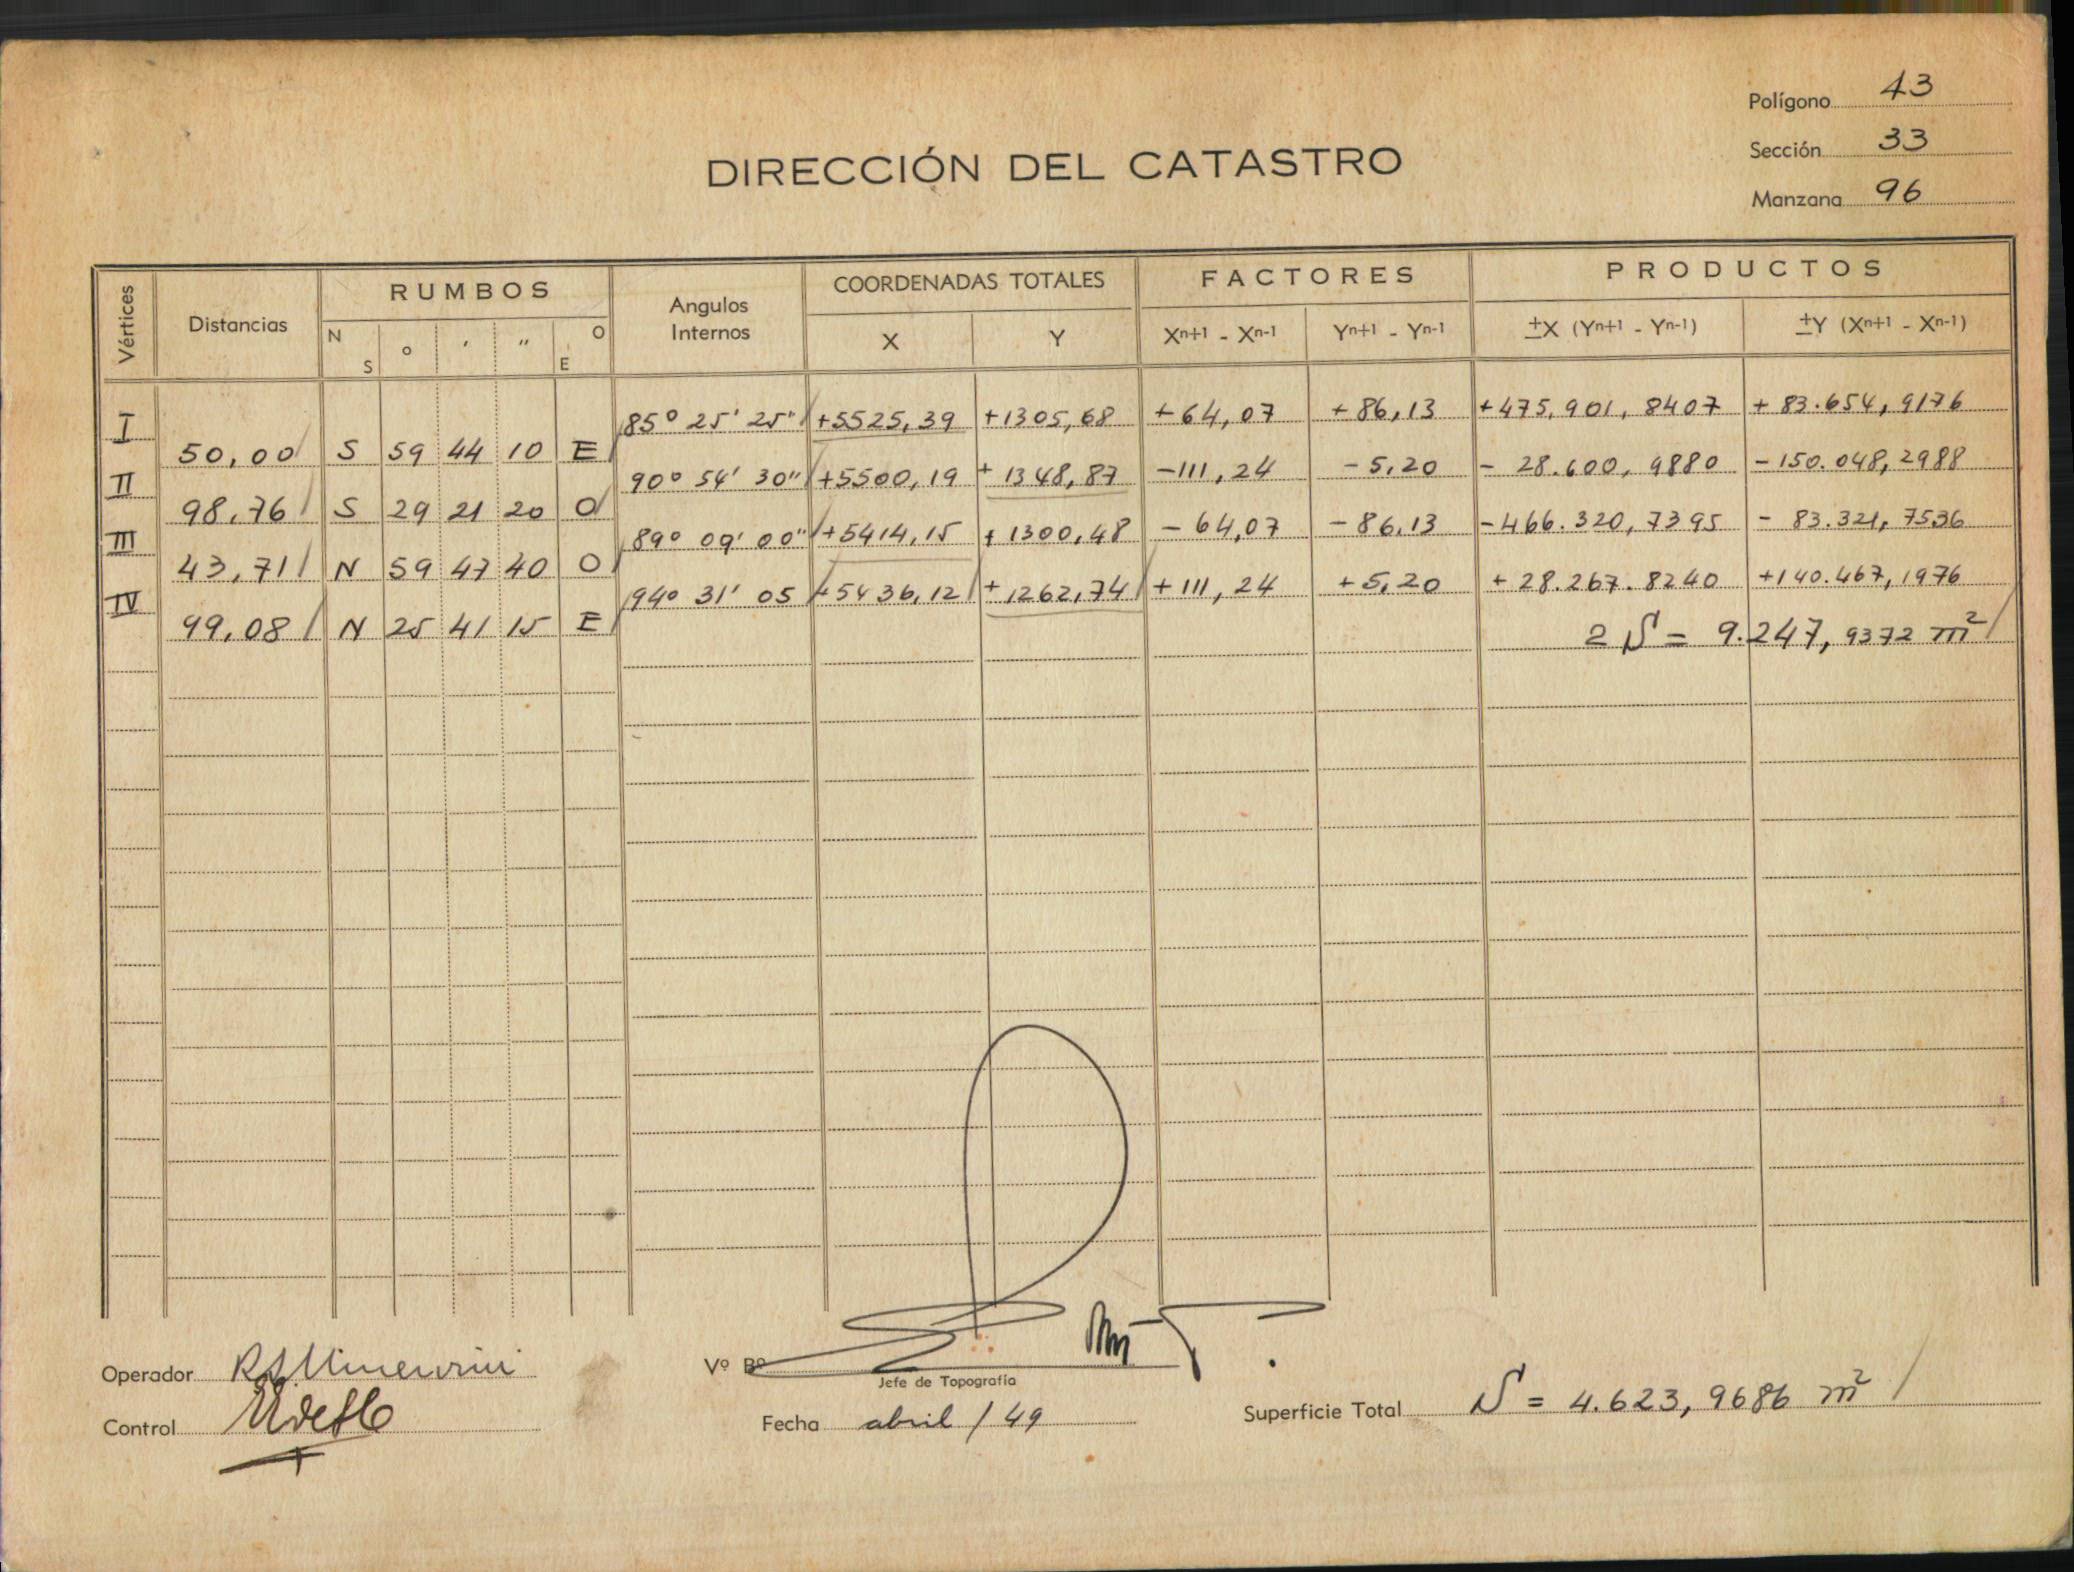 Polígono 43
Sección 33
Manzana 96
DIRECCIÓN DEL CATASTRO
Vértices Distancias RUMBOS Angulos Internos COORDENADAS TOTALES FACTORES PRODUCTOS
N S ° ' " O E X Y Xⁿ⁺¹ - Xⁿ⁻¹ Yⁿ⁺¹ - Yⁿ⁻¹ ±X (Yⁿ⁺¹ - Yⁿ⁻¹) ±Y (Xⁿ⁺¹ - Xⁿ⁻¹)
I 85° 25' 25" +5525,39 +1305,68 +64,07 +86,13 +475,901,8407 +83.654,9176
50,00 S 59 44 10 E
II 90° 54' 30" +5500,19 +1348,87 -111,24 -5,20 -28.600,9880 -150.048,2988
98,76 S 29 21 20 O
III 89° 09' 00" +5414,15 +1300,48 -64,07 -86,13 -466.320,7395 -83.321,7536
43,71 N 59 47 40 O
IV 94° 31' 05 +5436,12 +1262,74 +111,24 +5,20 +28.267.8240 +140.467,1976
99,08 N 25 41 15 E
2 S = 9.247,9372 m²
Operador
Vº Bº
Jefe de Topografía
Control
Fecha abril / 49
Superficie Total S = 4.623,9686 m²